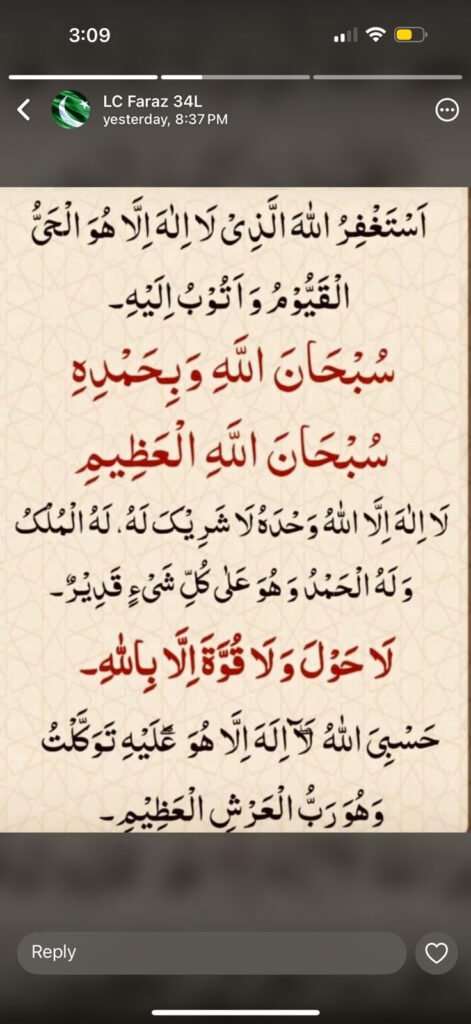 3:09
LC Faraz 34L
yesterday, 8:37 PM
اَسْتَغْفِرُ اللهَ الَّذِىْ لَا اِلٰهَ اِلَّا هُوَ الْحَىُّ
الْقَيُّوْمُ وَ اَتُوْبُ اِلَيْهِ۔
سُبْحَانَ اللَّهِ وَبِحَمْدِهِ
سُبْحَانَ اللَّهِ الْعَظِيمِ
لَا اِلٰهَ اِلَّا اللهُ وَحْدَهُ لَا شَرِيْكَ لَهُ، لَهُ الْمُلْكُ
وَ لَهُ الْحَمْدُ وَ هُوَ عَلٰى كُلِّ شَىْءٍ قَدِيْرٌ۔
لَا حَوْلَ وَ لَا قُوَّةَ اِلَّا بِاللهِ۔
حَسْبِىَ اللهُ لَآ اِلَهَ اِلَّا هُوَ عَلَيْهِ تَوَكَّلْتُ
وَهُوَ رَبُّ الْعَرْشِ الْعَظِيْمِ۔
Reply